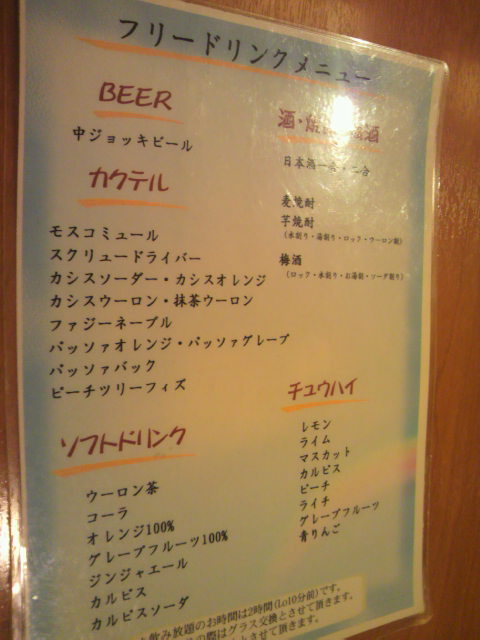 フリードリンクメニュー
BEER
中ジョッキビール
カクテル
モスコミュール
スクリュードライバー
カシスソーダー・カシスオレンジ
カシスウーロン・抹茶ウーロン
ファジーネーブル
パッソァオレンジ・パッソァグレープ
パッソァバック
ピーチツリーフィズ
ソフトドリンク
ウーロン茶
コーラ
オレンジ100%
グレープフルーツ100%
ジンジャエール
カルピス
カルピスソーダ
酒・
日本酒一合・二合
麦焼酎
芋焼酎
(水割り・湯割り・ロック・ウーロン割)
梅酒
(ロック・水割り・お湯割・ソーダ割り)
チュウハイ
レモン
ライム
マスカット
カルピス
ピーチ
ライチ
グレープフルーツ
青りんご
飲み放題のお時間は2時間(Lo10分前)です。
の際はグラス交換とさせて頂きます。
とさせて頂きます。